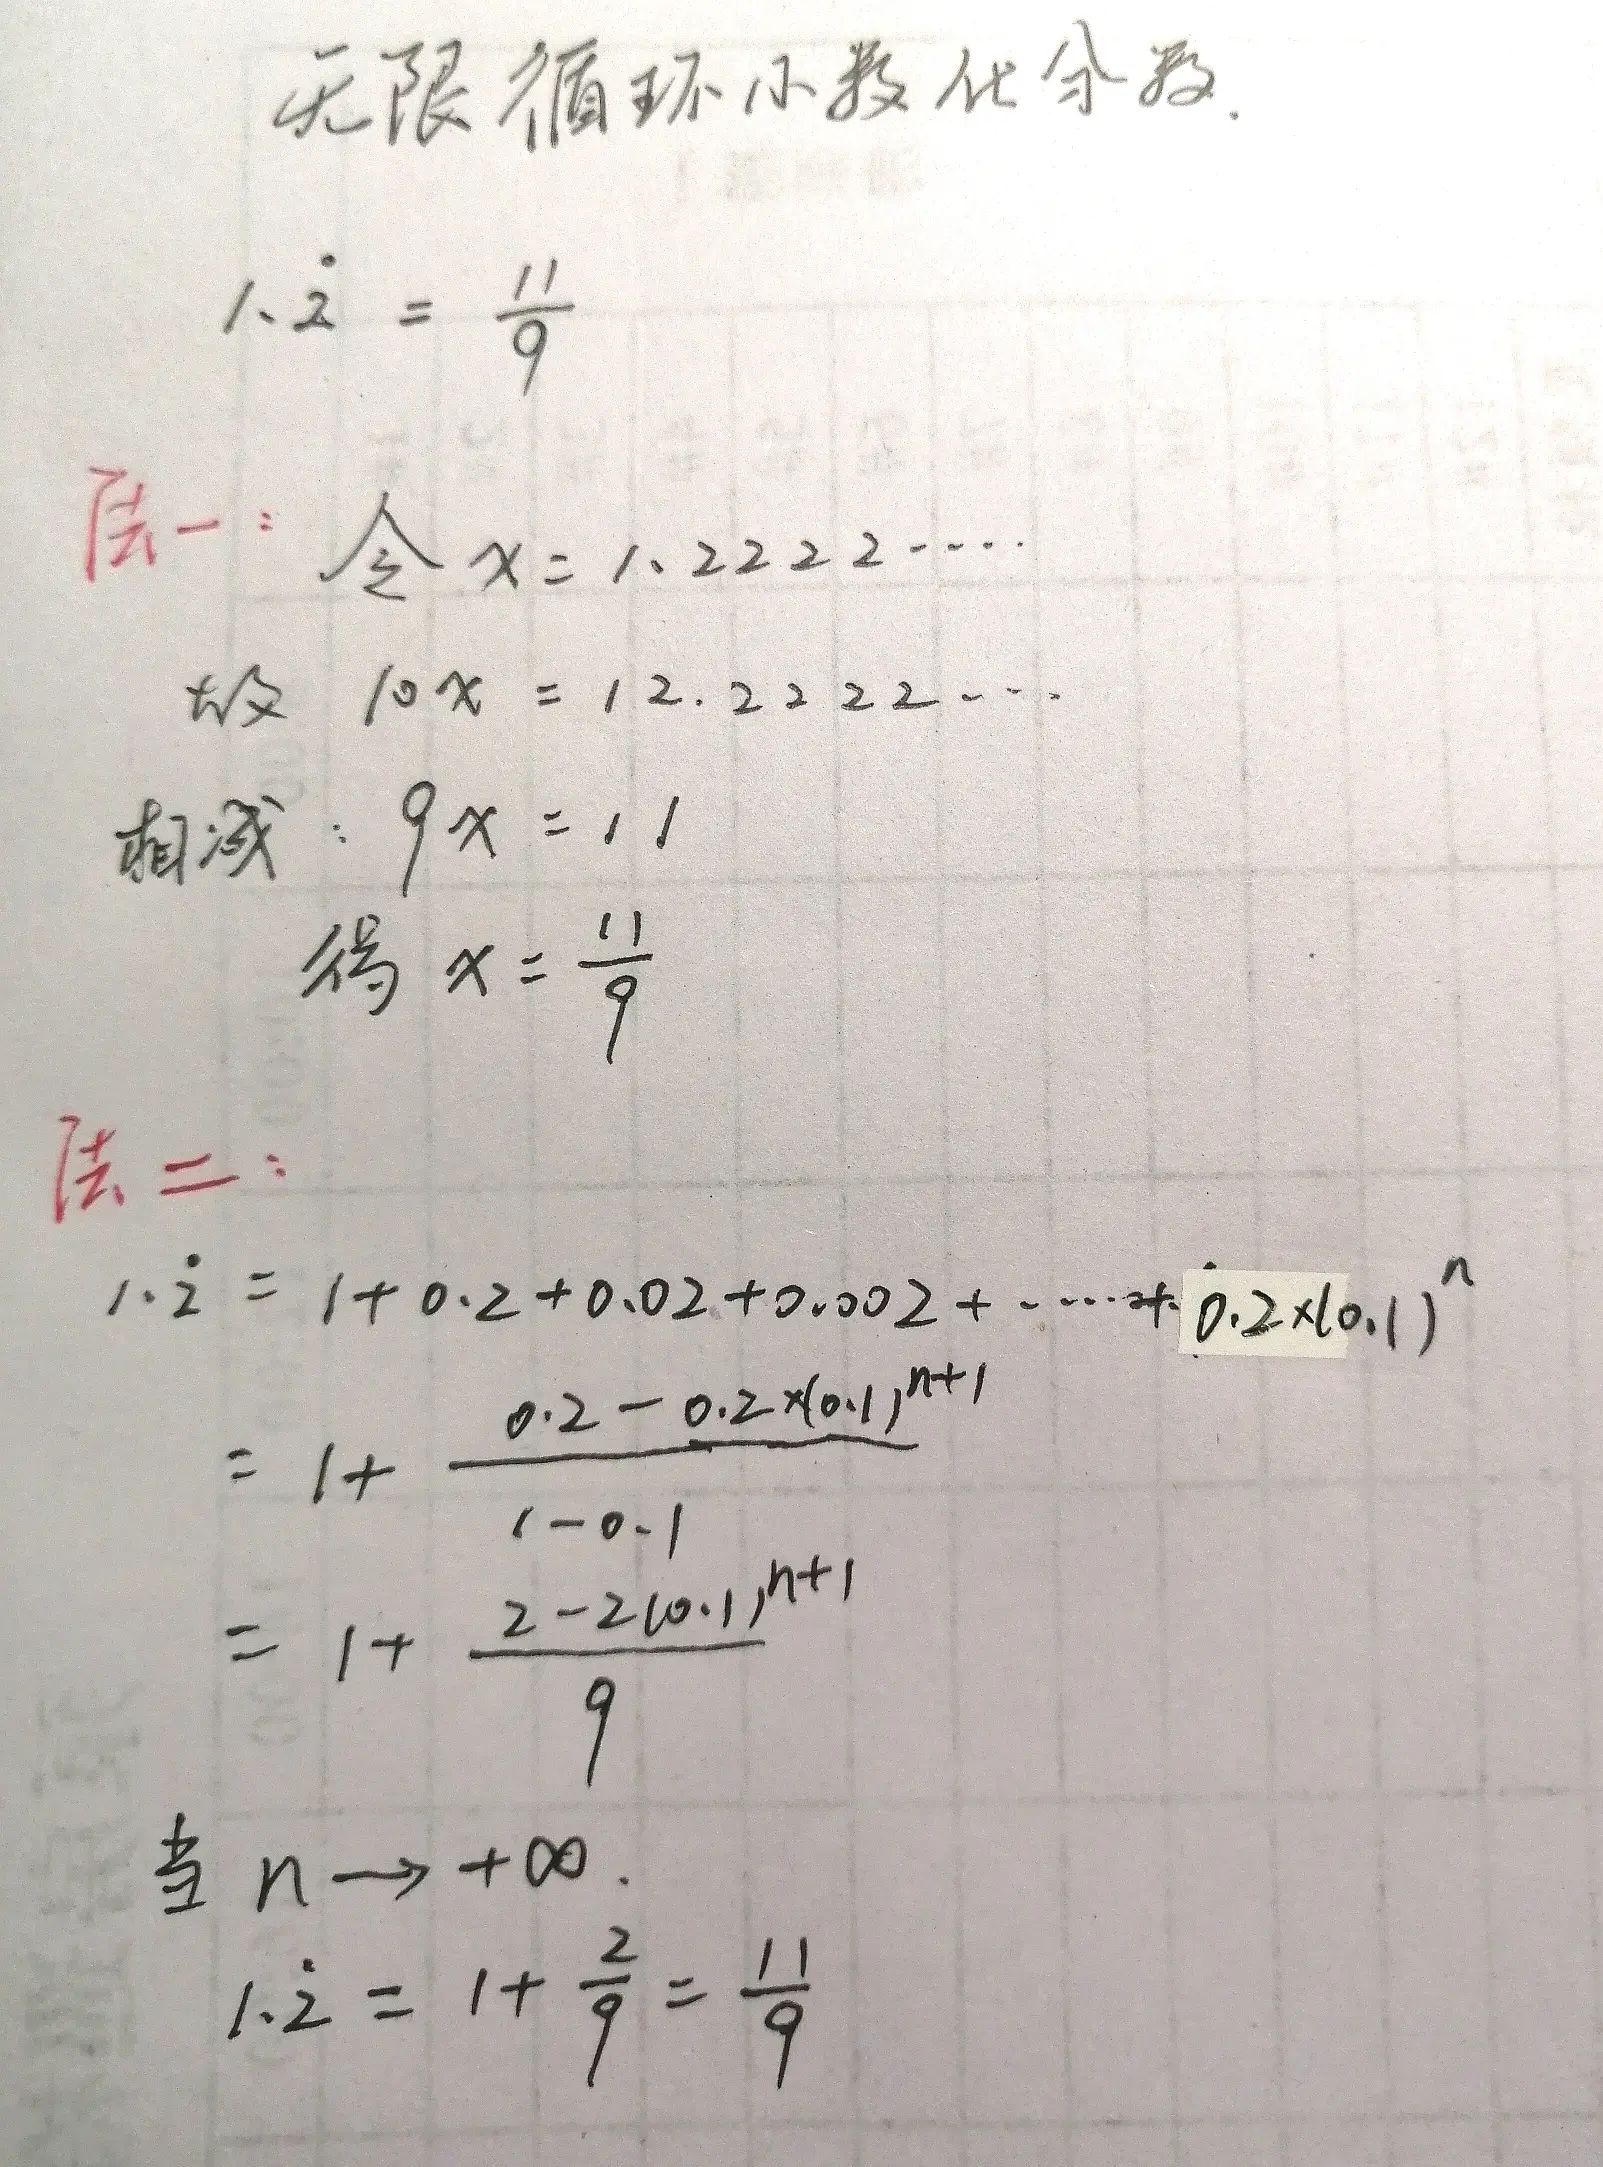 无限循环小数化分数.
1.2̇ = 11/9
法一: 令 x = 1.2222……
故 10x = 12.2222……
相减: 9x = 11
得 x = 11/9
法二:
1.2̇ = 1+0.2+0.02+0.002+……+0.2×(0.1)^n
= 1+ (0.2-0.2×(0.1)^(n+1))/(1-0.1)
= 1+ (2-2(0.1)^(n+1))/9
当 n→+∞.
1.2̇ = 1+ 2/9 = 11/9